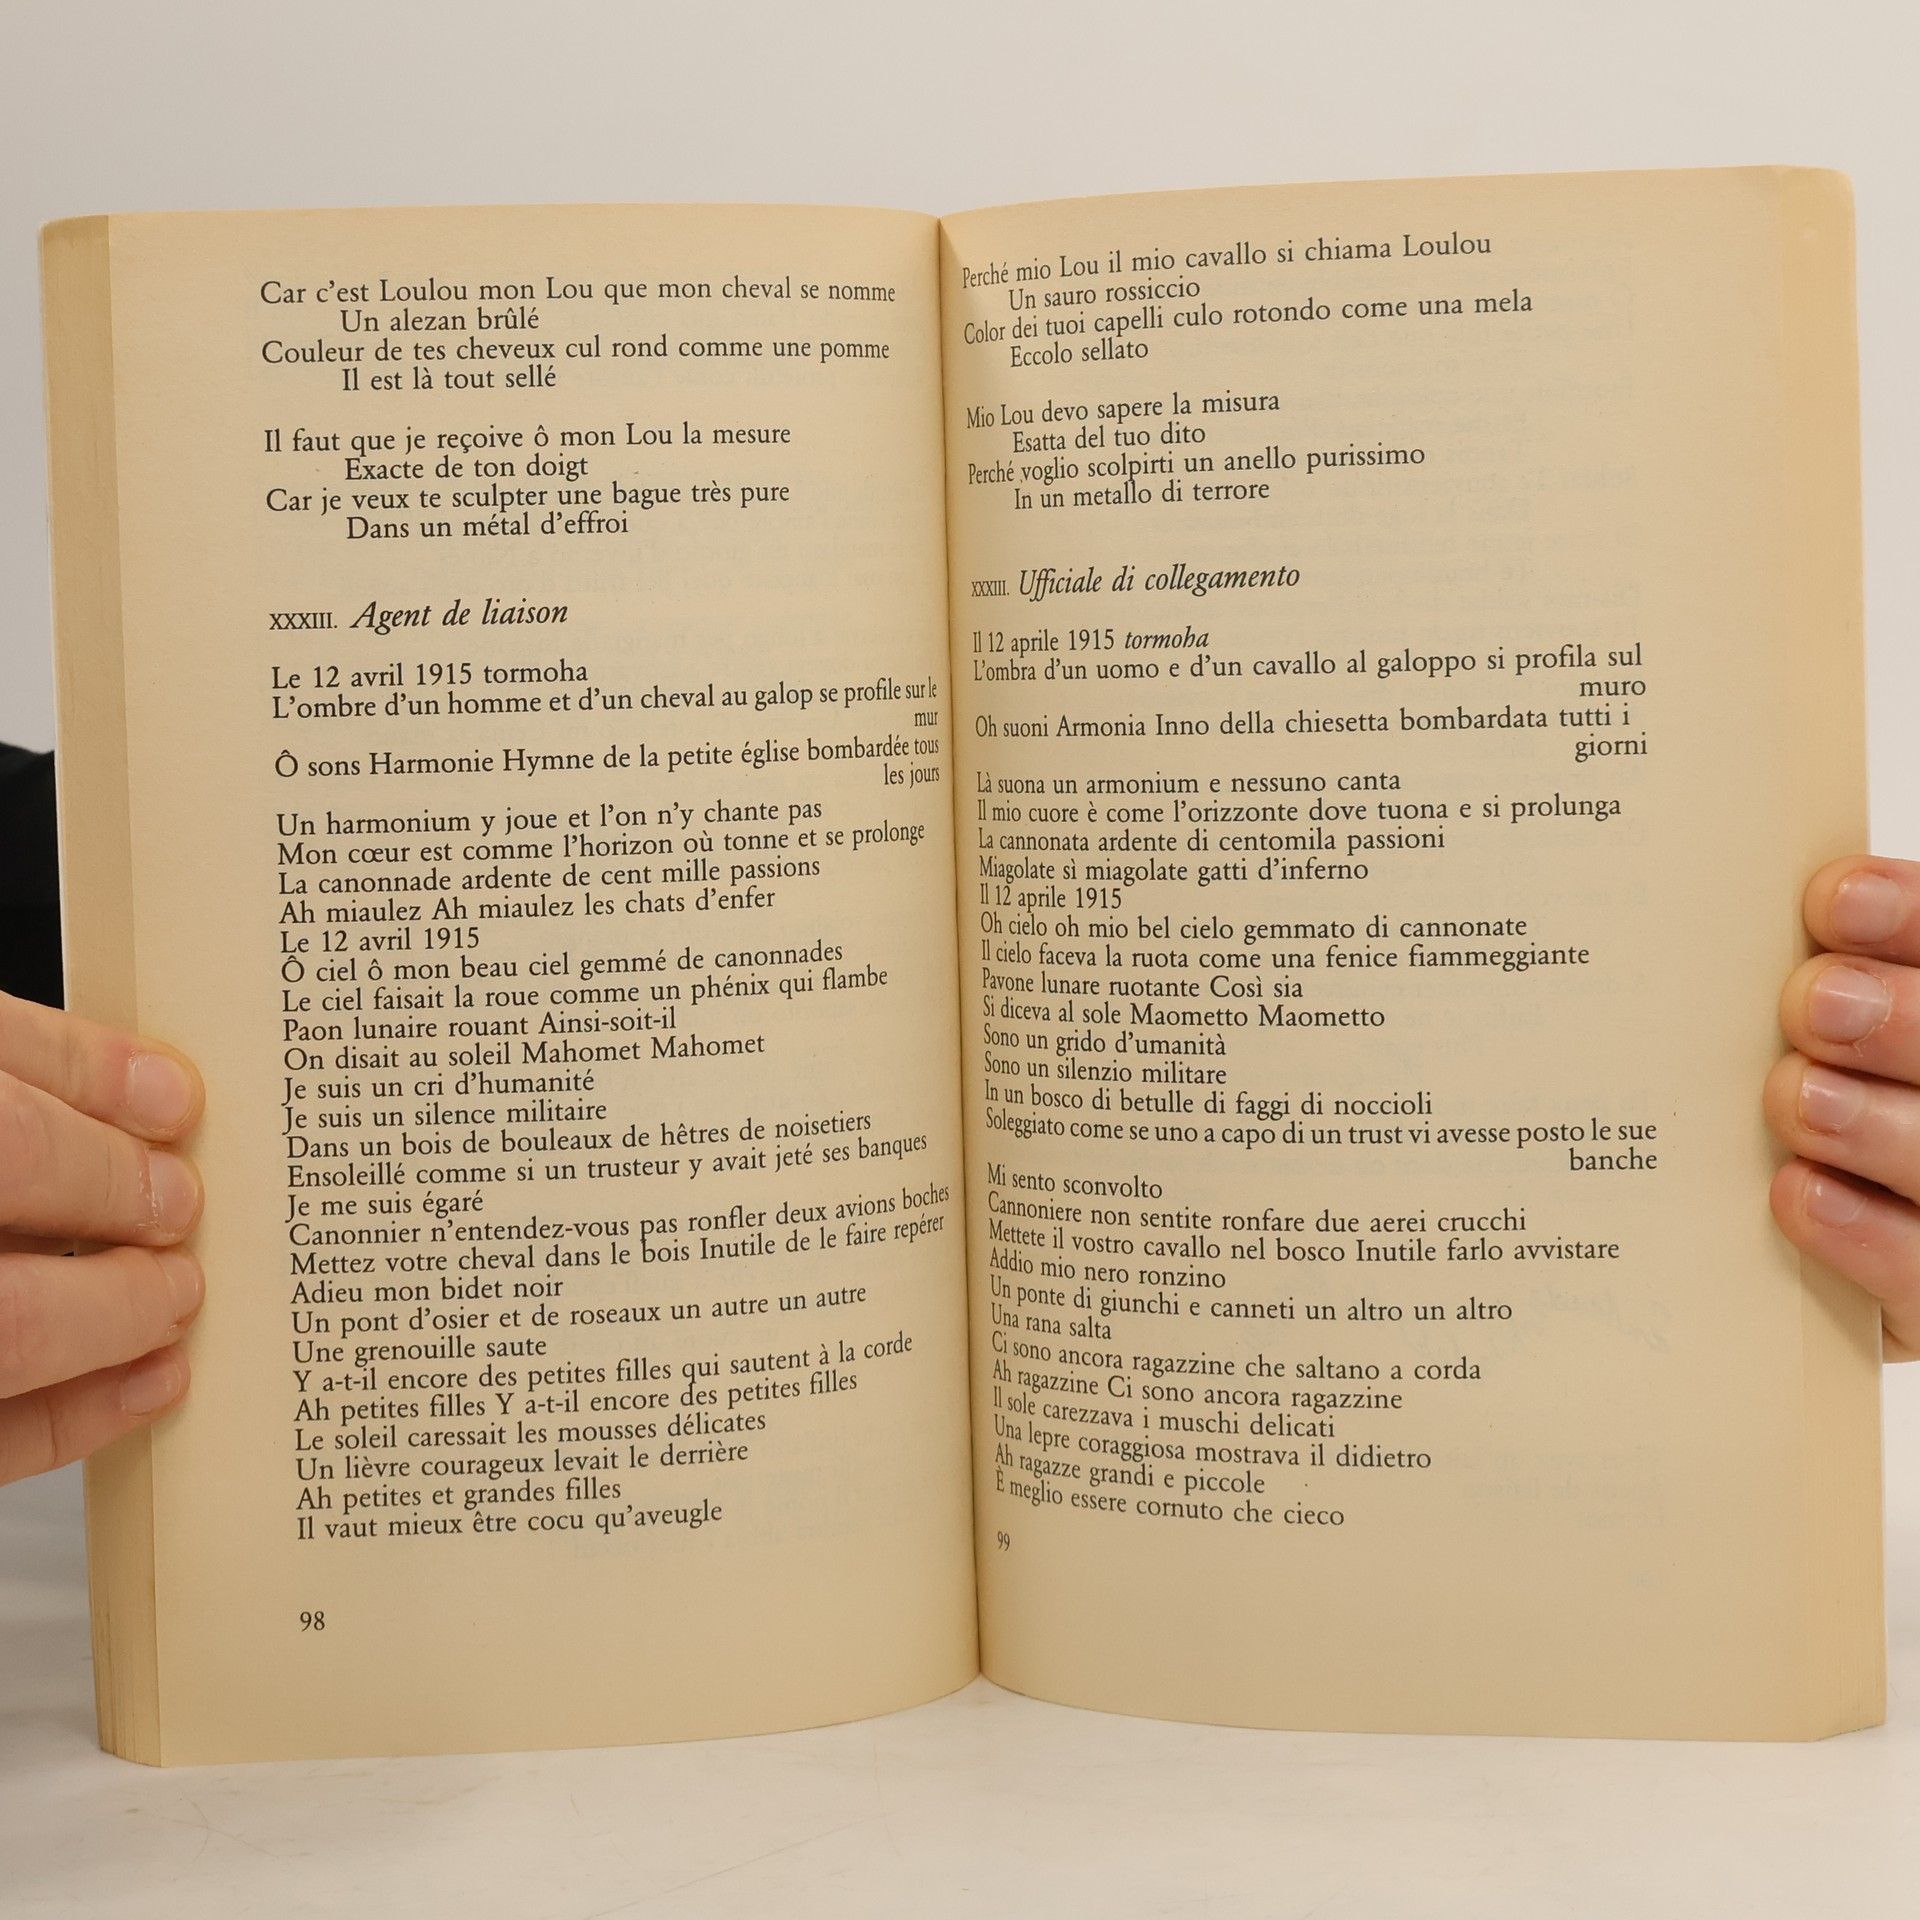 Car c'est Loulou mon Lou que mon cheval se nomme
Un alezan brûlé
Couleur de tes cheveux cul rond comme une pomme
Il est là tout sellé
Il faut que je reçoive ô mon Lou la mesure
Exacte de ton doigt
Car je veux te sculpter une bague très pure
Dans un métal d'effroi
XXXIII. Agent de liaison
Le 12 avril 1915 tormoha
L'ombre d'un homme et d'un cheval au galop se profile sur le
mur
Ô sons Harmonie Hymne de la petite église bombardée tous
les jours
Un harmonium y joue et l'on n'y chante pas
Mon cœur est comme l'horizon où tonne et se prolonge
La canonnade ardente de cent mille passions
Ah miaulez Ah miaulez les chats d'enfer
Le 12 avril 1915
Ô ciel ô mon beau ciel gemmé de canonnades
Le ciel faisait la roue comme un phénix qui flambe
Paon lunaire rouant Ainsi-soit-il
On disait au soleil Mahomet Mahomet
Je suis un cri d'humanité
Je suis un silence militaire
Dans un bois de bouleaux de hêtres de noisetiers
Ensoleillé comme si un trusteur y avait jeté ses banques
Je me suis égaré
Canonnier n'entendez-vous pas ronfler deux avions boches
Mettez votre cheval dans le bois Inutile de le faire repérer
Adieu mon bidet noir
Un pont d'osier et de roseaux un autre un autre
Une grenouille saute
Y a-t-il encore des petites filles qui sautent à la corde
Ah petites filles Y a-t-il encore des petites filles
Le soleil caressait les mousses délicates
Un lièvre courageux levait le derrière
Ah petites et grandes filles
Il vaut mieux être cocu qu'aveugle
98
Perché mio Lou il mio cavallo si chiama Loulou
Un sauro rossiccio
Color dei tuoi capelli culo rotondo come una mela
Eccolo sellato
Mio Lou devo sapere la misura
Esatta del tuo dito
Perché voglio scolpirti un anello purissimo
In un metallo di terrore
XXXIII. Ufficiale di collegamento
Il 12 aprile 1915 tormoha
L'ombra d'un uomo e d'un cavallo al galoppo si profila sul
muro
Oh suoni Armonia Inno della chiesetta bombardata tutti i
giorni
Là suona un armonium e nessuno canta
Il mio cuore è come l'orizzonte dove tuona e si prolunga
La cannonata ardente di centomila passioni
Miagolate sì miagolate gatti d'inferno
Il 12 aprile 1915
Oh cielo oh mio bel cielo gemmato di cannonate
Il cielo faceva la ruota come una fenice fiammeggiante
Pavone lunare ruotante Così sia
Si diceva al sole Maometto Maometto
Sono un grido d'umanità
Sono un silenzio militare
In un bosco di betulle di faggi di noccioli
Soleggiato come se uno a capo di un trust vi avesse posto le sue
banche
Mi sento sconvolto
Cannoniere non sentite ronfare due aerei crucchi
Mettete il vostro cavallo nel bosco Inutile farlo avvistare
Addio mio nero ronzino
Un ponte di giunchi e canneti un altro un altro
Una rana salta
Ci sono ancora ragazzine che saltano a corda
Ah ragazzine Ci sono ancora ragazzine
Il sole carezzava i muschi delicati
Una lepre coraggiosa mostrava il didietro
Ah ragazze grandi e piccole
È meglio essere cornuto che cieco
99